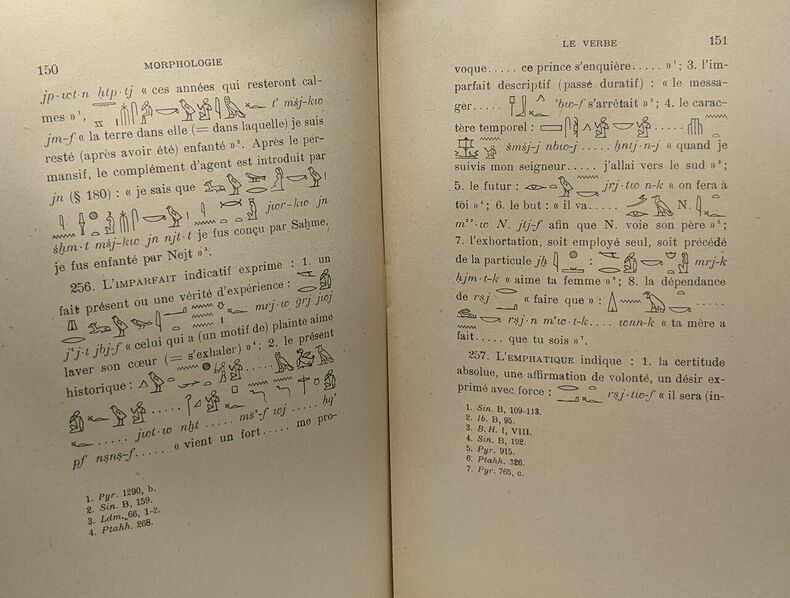 150 MORPHOLOGIE
jp·wt·n ḥtp·tj « ces années qui resteront cal-
mes »¹, t’ mśj-kw
jm-f « la terre dans elle (= dans laquelle) je suis
resté (après avoir été) enfanté »². Après le per-
mansif, le complément d'agent est introduit par
jn (§ 180) : « je sais que
jwr-kw jn
śḫm·t mśj-kw jn njt·t je fus conçu par Saḥme,
je fus enfanté par Nejt »³.
256. L'IMPARFAIT indicatif exprime : 1. un
fait présent ou une vérité d'expérience :
mrj·w grj jwj
j‘j·t jbj-f « celui qui a (un motif de) plainte aime
laver son cœur (= s'exhaler) »⁴; 2. le présent
historique :
jwt·w nḫt ..... mś’-f wj ..... ḥq’
pf nṣnṣ-f..... « vient un fort ..... me pro-
1. Pyr. 1290, b.
2. Sin. B, 159.
3. Ldm. 66, 1-2.
4. Ptahh. 268.
LE VERBE 151
voque..... ce prince s'enquière ..... »¹; 3. l'im-
parfait descriptif (passé duratif) : « le messa-
gér..... ’bw-f s'arrêtait »²; 4. le carac-
tère temporel : .....
śmśj-j nbw-j ..... ḫntj·n-j « quand je
suivis mon seigneur..... j'allai vers le sud »³;
5. le futur : jrj·tw n-k « on fera à
toi »⁴; 6. le but : « il va..... N.
m’’·w N. jtj-f afin que N. voie son père »⁵;
7. l'exhortation, soit employé seul, soit précédé
de la particule jḫ : mrj-k
ḥjm·t-k « aime ta femme »⁶; 8. la dépendance
de rṣj « faire que » : .....
rṣj·n m’w·t-k.... wnn-k « ta mère a
fait..... que tu sois »⁷.
257. L'EMPHATIQUE indique : 1. la certitude
absolue, une affirmation de volonté, un désir ex-
primé avec force : rṣj·tw-f « il sera (in-
1. Sin. B, 109-113.
2. Ib. B, 95.
3. B. H. I, VIII.
4. Sin. B, 192.
5. Pyr. 915.
6. Ptahh. 326.
7. Pyr. 765, c.